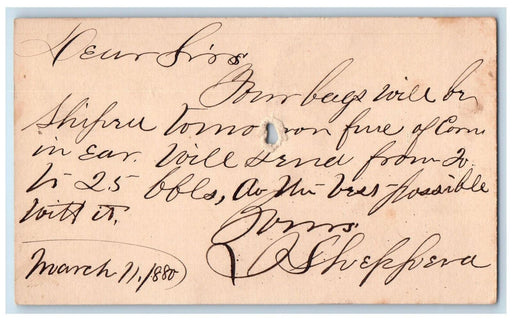 Dear Sirs
Your bags will be
shiped tomorrow full of Corn
in Ear. Will send from 20
to 25 bbls, Do the best possible
with it.
Yours
Shepperd
March 11, 1880